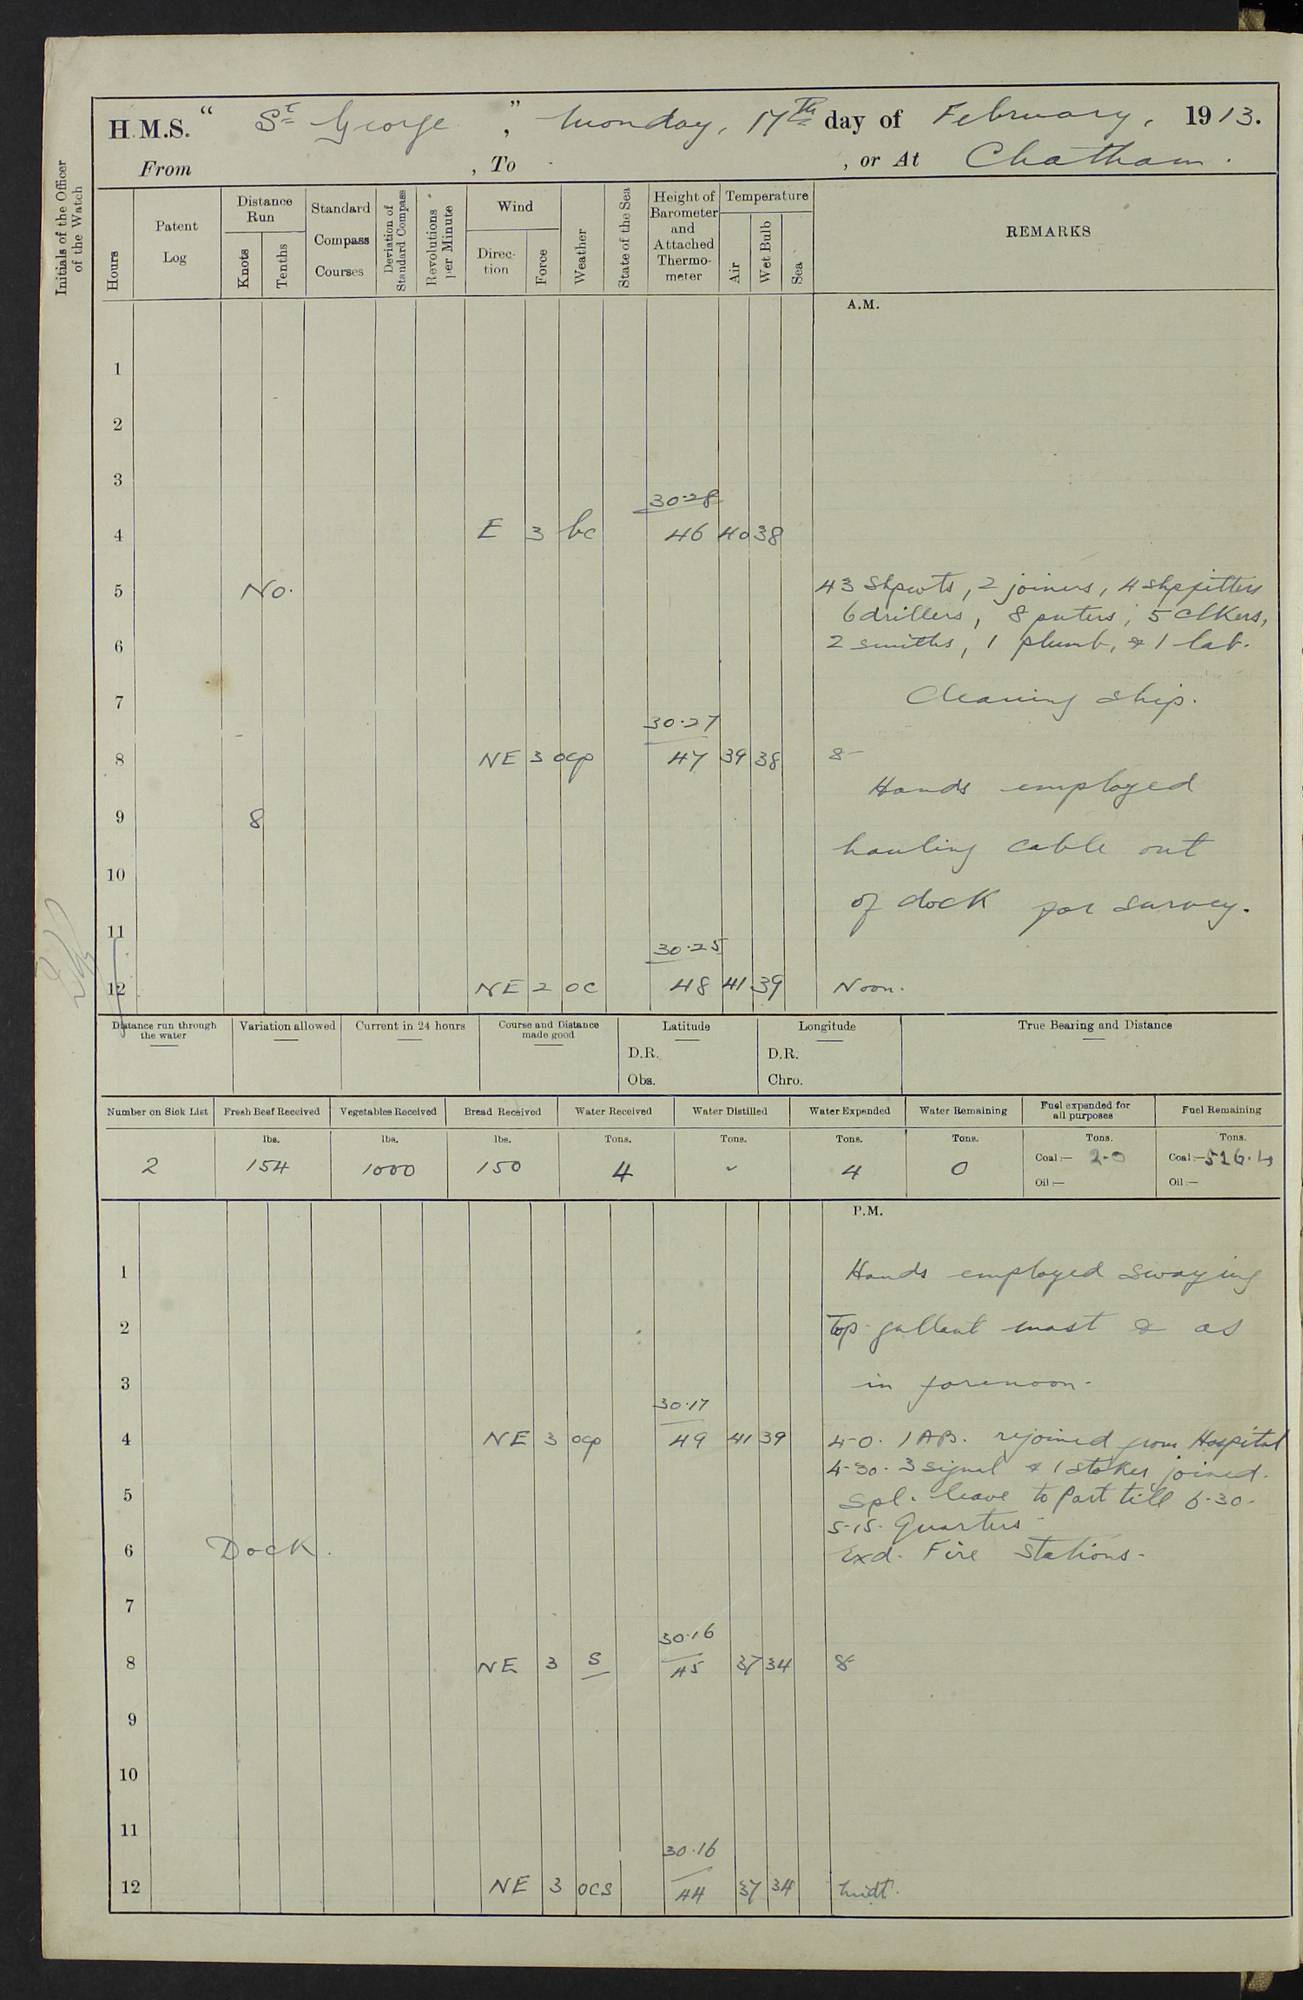 H.M.S. " St George ", Monday, 17th day of February, 1913.
From , To , or At Chatham.
Initials of the Officer of the Watch
Hours
Patent Log
Distance Run
Knots
Tenths
Standard Compass Courses
Deviation of Standard Compass
Revolutions per Minute
Wind
Direction
Force
Weather
State of the Sea
Height of Barometer and Attached Thermometer
Temperature
Air
Wet Bulb
Sea
REMARKS
A.M.
1
2
3
30.28
4 E 3 bc 46 40 38
5 No. 43 Shpwts, 2 joiners, 4 shpfitters
6 drillers, 8 pnters, 5 clkers,
6 2 smiths, 1 plumb, & 1 lab.
7 Cleaning ship.
30.27
8 NE 3 ocp 47 39 38 8-
Hands employed
9 8
hauling cable out
10
of dock for survey.
11
30.25
12 NE 2 oc 48 41 39 Noon.
Distance run through the water
Variation allowed
Current in 24 hours
Course and Distance made good
Latitude
D.R.
Obs.
Longitude
D.R.
Chro.
True Bearing and Distance
Number on Sick List Fresh Beef Received Vegetables Received Bread Received Water Received Water Distilled Water Expended Water Remaining Fuel expended for all purposes Fuel Remaining
lbs. lbs. lbs. Tons. Tons. Tons. Tons. Tons. Tons.
2 154 1000 150 4 - 4 0 Coal:— 2-0 Coal:— 516.4
Oil:— Oil:—
P.M.
1 Hands employed swaying
2 Top gallant mast & as
3 in forenoon.
30.17
4 NE 3 ocp 49 41 39 4-0. 1 AB. rejoined from Hospital
4-30. 3 signal & 1 stoker joined.
5 Spl. leave to Part till 6-30.
5-15. Quarters
6 Dock. Exd. Fire Stations.
7
30.16
8 NE 3 s 45 37 34 8-
9
10
11
30.16
12 NE 3 ocs 44 37 34 Midt.